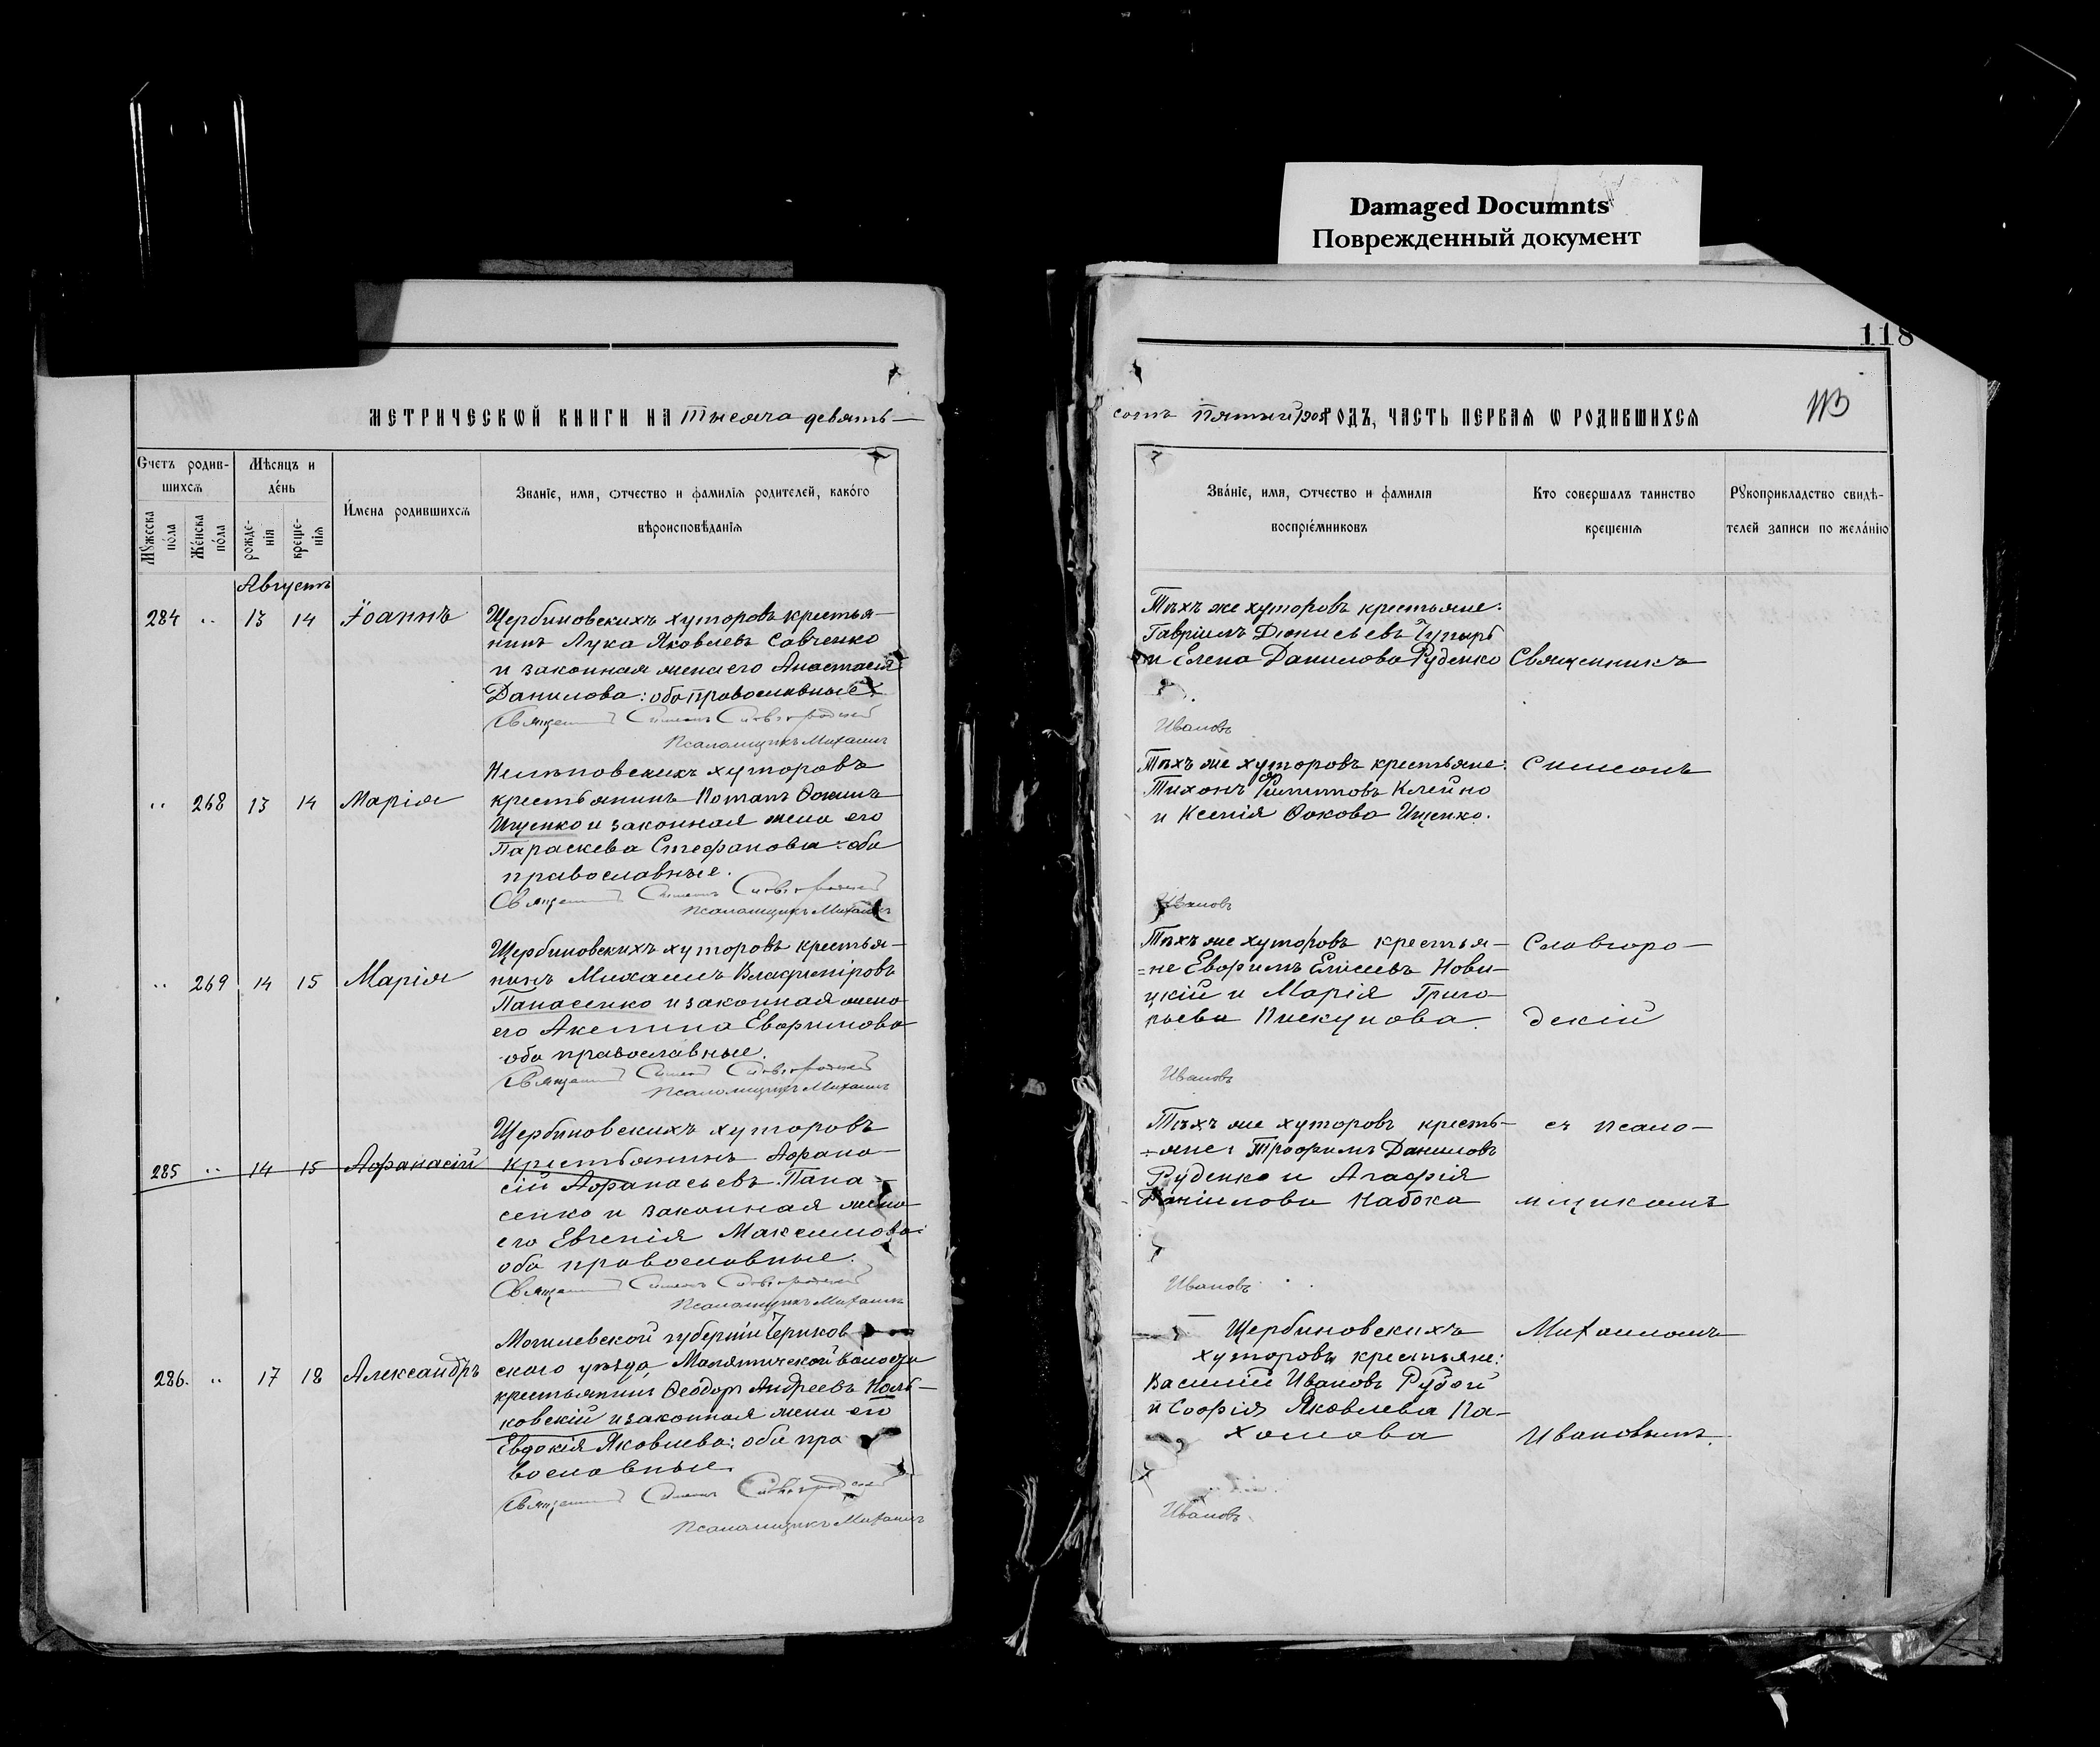 Damaged Documnts
Поврежденный документ
118
МЕТРИЧЕСКОЙ КНИГИ НА Тысяча девять-
Счетъ родив-
шихся
Мѣсяцъ и
де́нь
Мꙋжеска
по́ла
Же́нска
по́ла
рожде-
нія
креще-
нія
И́мена родившихся
Званіе, имя, отчество и фамилія родителей, како́го
вѣроисповѣданія
Августъ
284 " 13 14 Іоаннъ
Щербиновскихъ хуторовъ крестья-
нинъ Лука Яковлевъ Савченко
и законная жена его Анастасія
Данилова: оба православные
Священникъ Симеонъ Славгородскій
Псаломщикъ Михаилъ
" 268 13 14 Марія
хуторовъ
крестьянинъ Потапъ Ѳокинъ
Ищенко и законная жена его
Параскева Стефанова: оба
православные.
Священникъ Симеонъ Славгородскій
Псаломщикъ Михаилъ
" 269 14 15 Марія
Щербиновскихъ хуторовъ крестья-
нинъ Михаилъ Владиміровъ
Панасенко и законная жена
его Акелина Евфимова
оба православные.
Священникъ Симеонъ Славгородскій
Псаломщикъ Михаилъ
285 " 14 15 Афанасій
Щербиновскихъ хуторовъ
крестьянинъ Афана-
сій Афанасьевъ Пана-
сенко и законная жена
его Евгенія Максимова:
оба православные.
Священникъ Симеонъ Славгородскій
Псаломщикъ Михаилъ
286. " 17 18 Александръ
Могилевской губерніи Чериков-
скаго уѣзда, Малятичской волости
крестьянинъ Ѳеодоръ Андреевъ
ковскій и законная жена его
Евдокія Яковлева: оба пра
вославные.
Священникъ Симеонъ Славгородскій
Псаломщикъ Михаилъ
сотъ пятый 1905 ГОДЪ, ЧАСТЬ ПЕРВАЯ Ѡ РОДИВШИХСЯ
Зва́ніе, имя, отчество и фамилія
воспріе́мниковъ
Кто совершалъ таинство
крещенія
Рꙋкоприкладство свидѣ-
телей записи по жела́нію
Тѣхъ же хуторовъ крестьяне:
Гавріилъ Діонисьевъ Чупырь
и Елена Данилова Руденко Священникъ
Ивановъ
Тѣхъ же хуторовъ крестьяне: Симеонъ
Тихонъ Филипповъ Клейно
и Ксенія Ѳокова Ищенко.
Ивановъ
Тѣхъ же хуторовъ крестья- Славгоро-
=не Евфимъ Елисеевъ Нови-
цкій и Марія Григо-
рьева Пискунова. дскій
Ивановъ
Тѣхъ же хуторовъ кресть- съ псало-
=яне: Трофимъ Даниловъ
Руденко и Агафія
Даніилова Кабока мщикомъ
Ивановъ
Щербиновскихъ Михаиломъ
хуторовъ крестьяне:
Василій Ивановъ Рубой
и Софія Яковлева Па-
хомова Ивановымъ.
Ивановъ